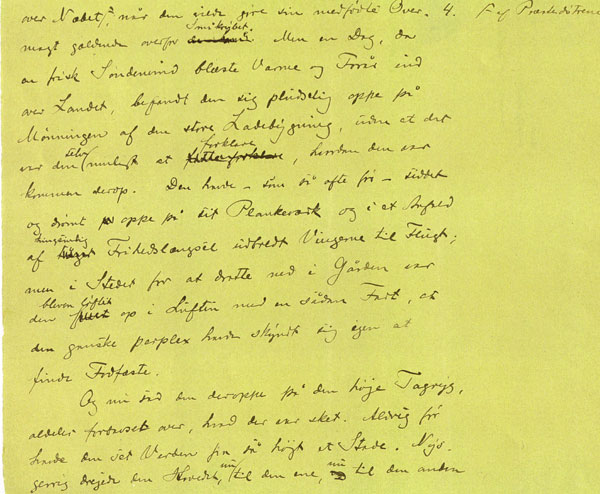 over Nædet, når den vilde give sin medfødte Over- 4. F af Præstedstrene
magt gældende overfor Småkrybet. Men en Dag, da
en frisk Søndenvind blæste Varme og Forår ind
over Landet, befandt den sig pludselig oppe på
Mønningen af den store Ladebygning, uden at det
var den selv muligt at forklare, hvordan den var
kommen derop. Den havde – som så ofte før – siddet
og drømt oppe på sit Plankeværk og i et Anfald
af Frihedslængsel udbredt Vingerne til Flugt;
men i Stedet for at dratte ned i Gården var
den bleven løftet op i Luften med en sådan Fart, at
den ganske perplex havde skyndt sig igen at
finde Fodfæste.
Og nu sad den deroppe på den høje Tagryg,
aldeles fortumlet over, hvad der var sket. Aldrig før
havde den set Verden fra så højt et Stade. Nys-
gerrig drejede den Hovedet, nu til den ene, nu til den anden